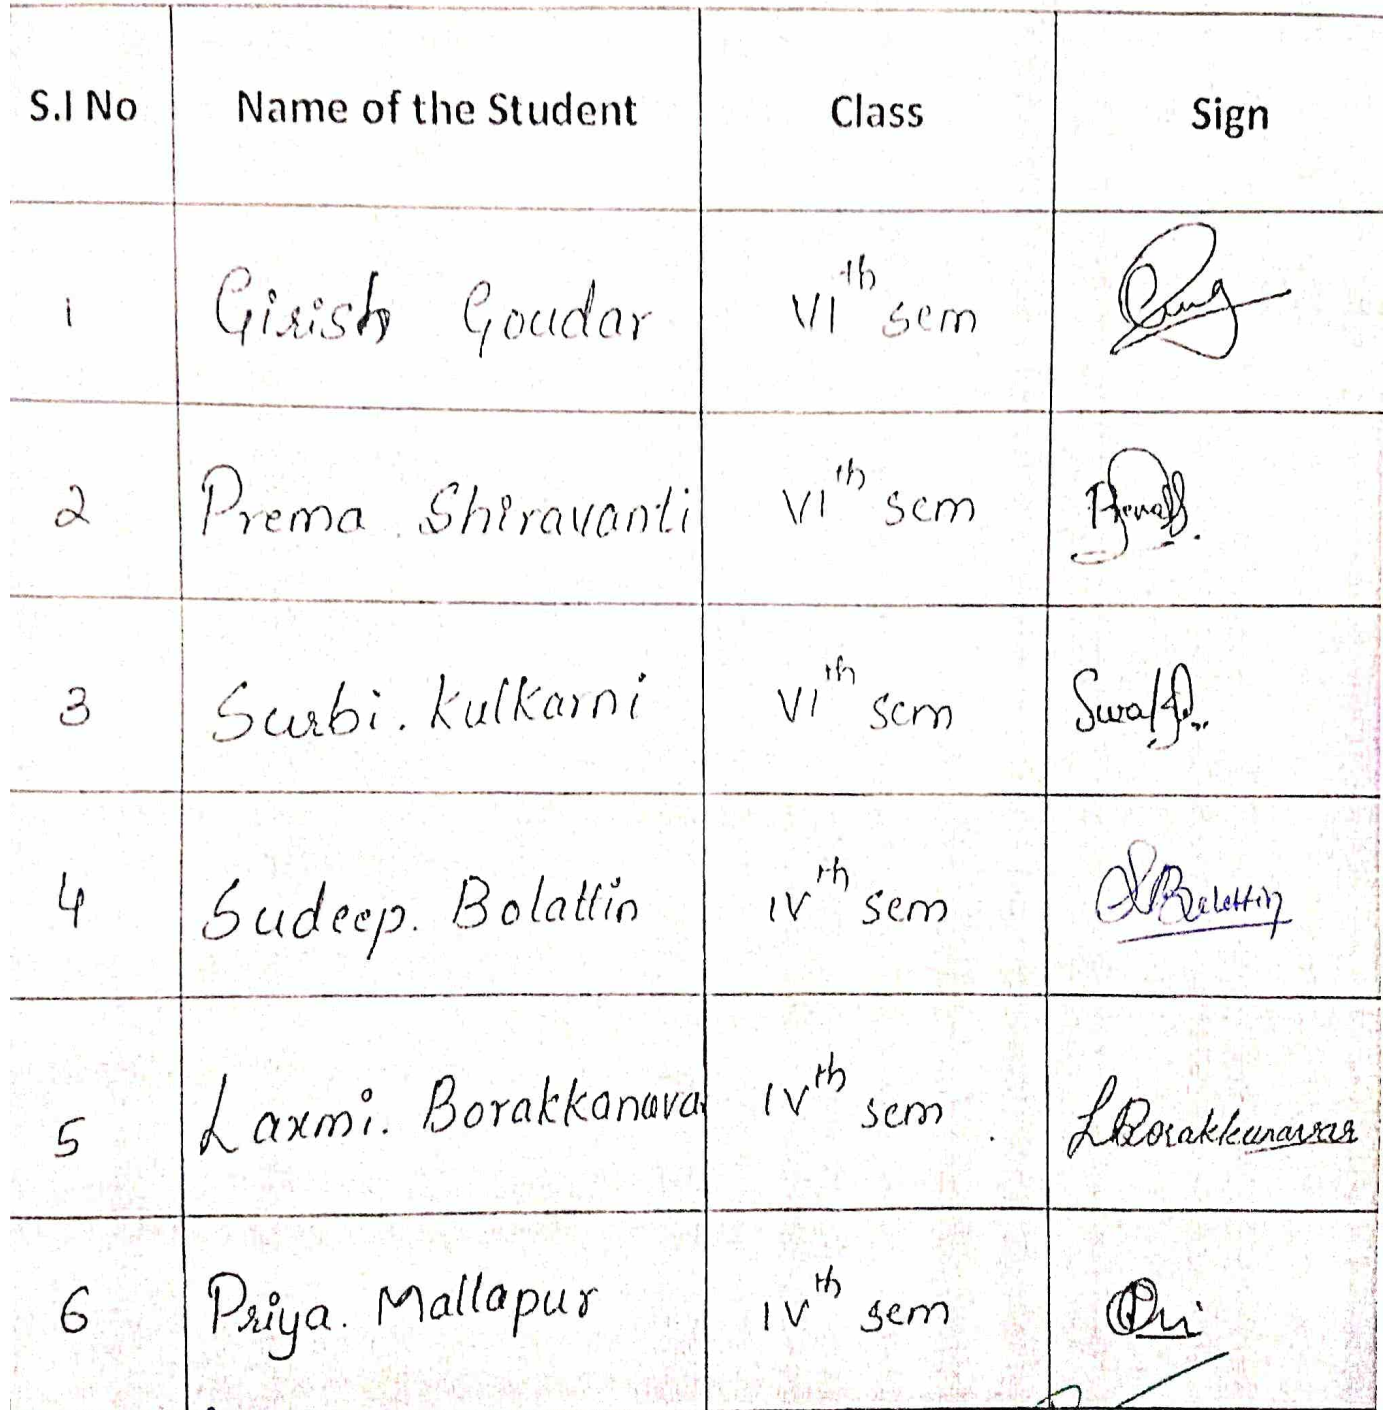 S.I No Name of the Student Class Sign
1 Girish Goudar VIth sem
2 Prema Shiravanti VIth sem
3 Surbi. Kulkarni VIth sem
4 Sudeep. Bolattin IVth sem SBolettin
5 Laxmi. Borakkanava IVth sem LBorakkanavar
6 Priya. Mallapur IVth sem Pri